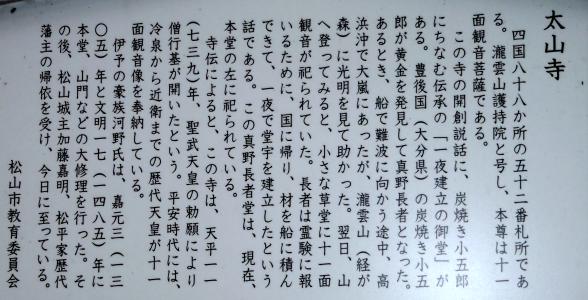 太山寺
四国八十八か所の五十二番札所であ
る。瀧雲山護持院と号し、本尊は十一
面観音菩薩である。
この寺の開創説話に、炭焼き小五郎
にちなむ伝承の「一夜建立の御堂」が
ある。豊後国(大分県)の炭焼き小五
郎が黄金を発見して真野長者となった。
あるとき、船で難波に向かう途中、高
浜沖で大嵐にあったが、瀧雲山(経が
森)に光明を見て助かった。翌日、山
へ登ってみると、小さな草堂に十一面
観音が祀られていた。長者は霊験に報
いるために、国に帰り、材を船に積ん
できて、一夜で堂宇を建立したという
話である。この真野長者堂は、現在、
本堂の左に祀られている。
寺伝によると、この寺は、天平一一
(七三九)年、聖武天皇の勅願により
僧行基が開いたという。平安時代には、
冷泉から近衛までの歴代天皇が十一
面観音像を奉納している。
伊予の豪族河野氏は、嘉元三(一三
〇五)年と文明一七(一四八五)年に
本堂、山門などの大修理を行った。そ
の後、松山城主加藤嘉明、松平家歴代
藩主の帰依を受け、今日に至っている。
松山市教育委員会